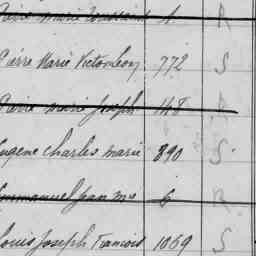 Pierre Marie Toussaint 1. R
Pierre Marie Victor Léon 772 S
Pierre Marie Joseph 148 R
Eugène Charles Marie 890 S
Emmanuel Jean Me 6 R
Louis Joseph François 1069 S